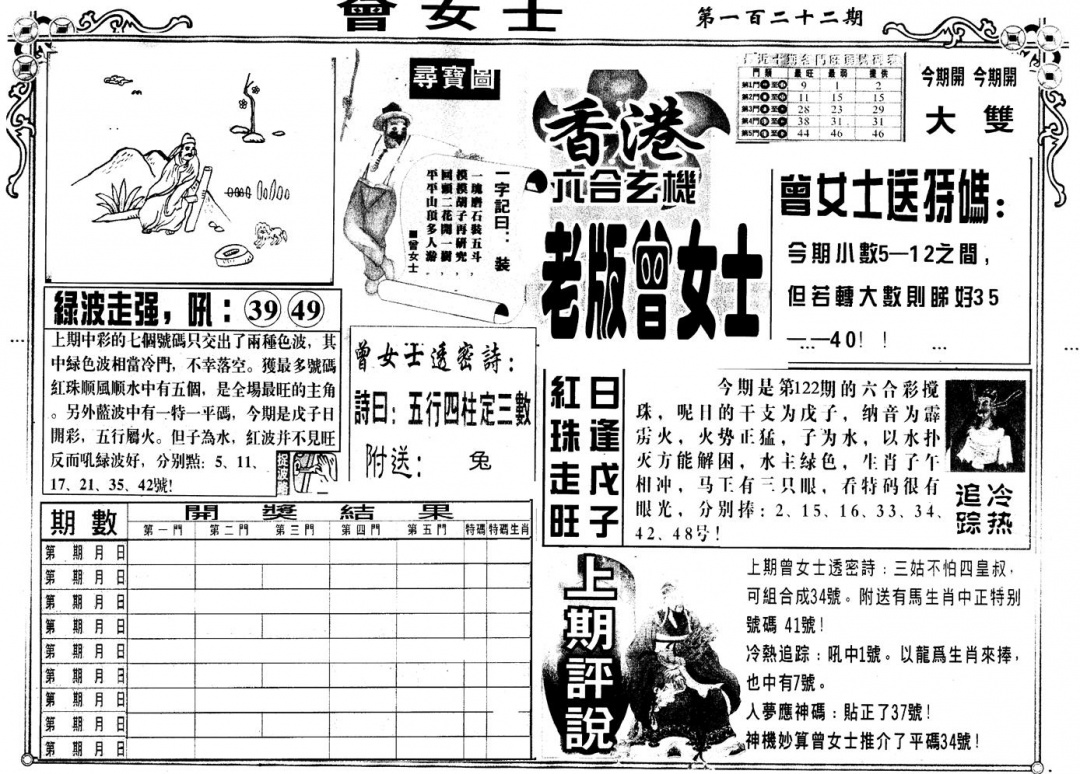 曾女士
第一百二十二期
尋寶圖
一字記曰：裝
一塊磨石裝五斗，
摸摸胡子再研究，
回頭二花開一樹，
平平山頂多人游，
曾女士
香港
六合玄機
老版曾女士
門類 最旺 最弱 提供
第1門 9 1 2
第2門 11 15 15
第3門 28 23 29
第4門 38 31 31
第5門 44 46 46
今期開 今期開
大 雙
曾女士送特碼：
今期小數5—12之間，
但若轉大數則睇好35
——40！！
綠波走强，吼：39 49
上期中彩的七個號碼只交出了兩種色波，其
中綠色波相當冷門，不幸落空。獲最多號碼
紅珠顺風顺水中有五個，是全場最旺的主角
。另外藍波中有一特一平碼，今期是戊子日
開彩，五行屬火。但子為水，紅波并不見旺
反而吼緑波好，分别點：5、11、
17、21、35、42號！
曾女士透密詩：
詩曰：五行四柱定三數
附送： 兔
紅珠走旺
日逢戊子
今期是第122期的六合彩搅
珠，呢日的干支为戊子，纳音为霹
雳火，火势正猛，子为水，以水扑
火方能解困，水主绿色，生肖子午
相冲，马王有三只眼，看特码很有
眼光，分别捧：2、15、16、33、34、
42、48号！
冷热
追踪
期數 開獎結果
第一門 第二門 第三門 第四門 第五門 特碼 特碼生肖
第 期 月 日
第 期 月 日
第 期 月 日
第 期 月 日
第 期 月 日
第 期 月 日
第 期 月 日
第 期 月 日
第 期 月 日
上期評說
上期曾女士透密詩：三姑不怕四皇叔，
可組合成34號。附送有馬生肖中正特别
號碼 41號！
冷熱追踪：吼中1號。以龍爲生肖來捧，
也中有7號。
人夢應神碼：貼正了37號！
神機妙算曾女士推介了平碼34號！